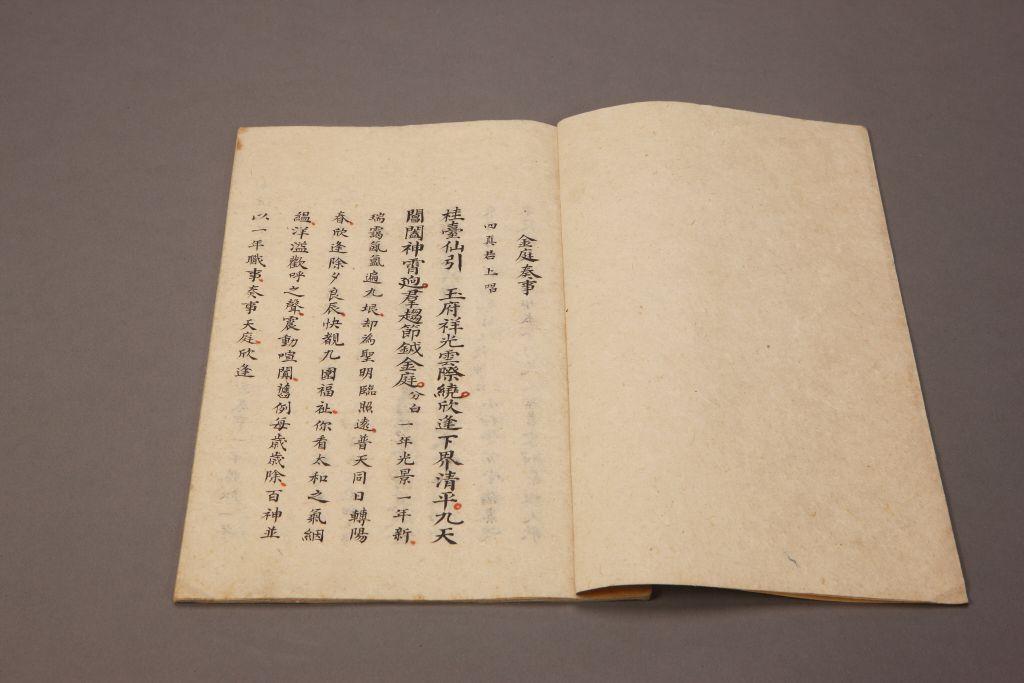 金庭奏事
四真君上唱
桂臺仙引 玉府祥光雲際繞欣逢下界清平九天
閶闔神霄逈羣趨節鉞金庭分白一年光景一年新
瑞靄氤氳遍九垠却為聖明臨照遠普天同日轉陽
春欣逢除夕良辰快覩九圍福祉你看太和之氣絪
縕洋溢歡呼之聲震動喧闐舊例每歲歲除百神並
以一年職事奏事天庭欣逢